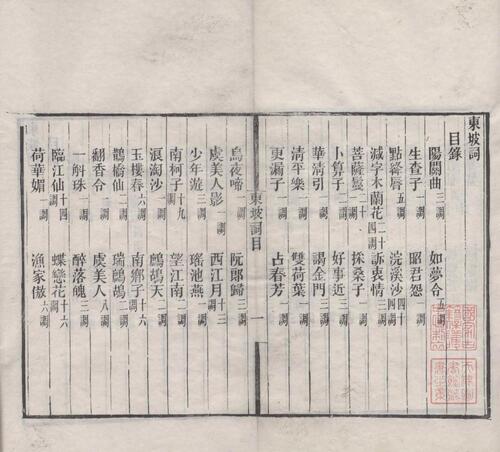 東坡詞
目錄
陽關曲三調 如夢令五調
生查子一調 昭君怨一調
點絳唇五調 浣溪沙四十四調
減字木蘭花二十四調 訴衷情三調
菩薩蠻二十一調 採桑子二調
卜算子二調 好事近三調
華清引一調 謁金門三調
清平樂一調 雙荷葉一調
更漏子一調 占春芳一調
東坡詞目 一
烏夜啼一調 阮郎歸三調
虞美人影一調 西江月十三調
少年遊三調 瑤池燕一調
南柯子十九調 望江南二調
浪淘沙一調 鷓鴣天二調
玉樓春六調 南鄉子十六調
鵲橋仙二調 瑞鷓鴣二調
翻香令一調 虞美人八調
一斛珠一調 醉落魄四調
臨江仙十四調 蝶戀花十六調
荷華媚一調 漁家傲六調